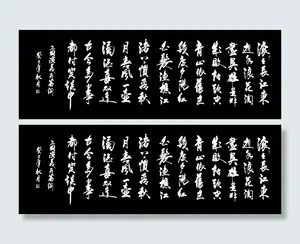 滚滚長江東
逝水浪花淘
盡英雄是非
成敗轉頭空
青山依舊在
幾度夕陽紅
白髮漁樵江
渚上慣看秋
月春風一壺
濁酒喜相逢
古今多少事
都付笑談中
三國演義
滚滚長江東
逝水浪花淘
盡英雄是非
成敗轉頭空
青山依舊在
幾度夕陽紅
白髮漁樵江
渚上慣看秋
月春風一壺
濁酒喜相逢
古今多少事
都付笑談中
三國演義